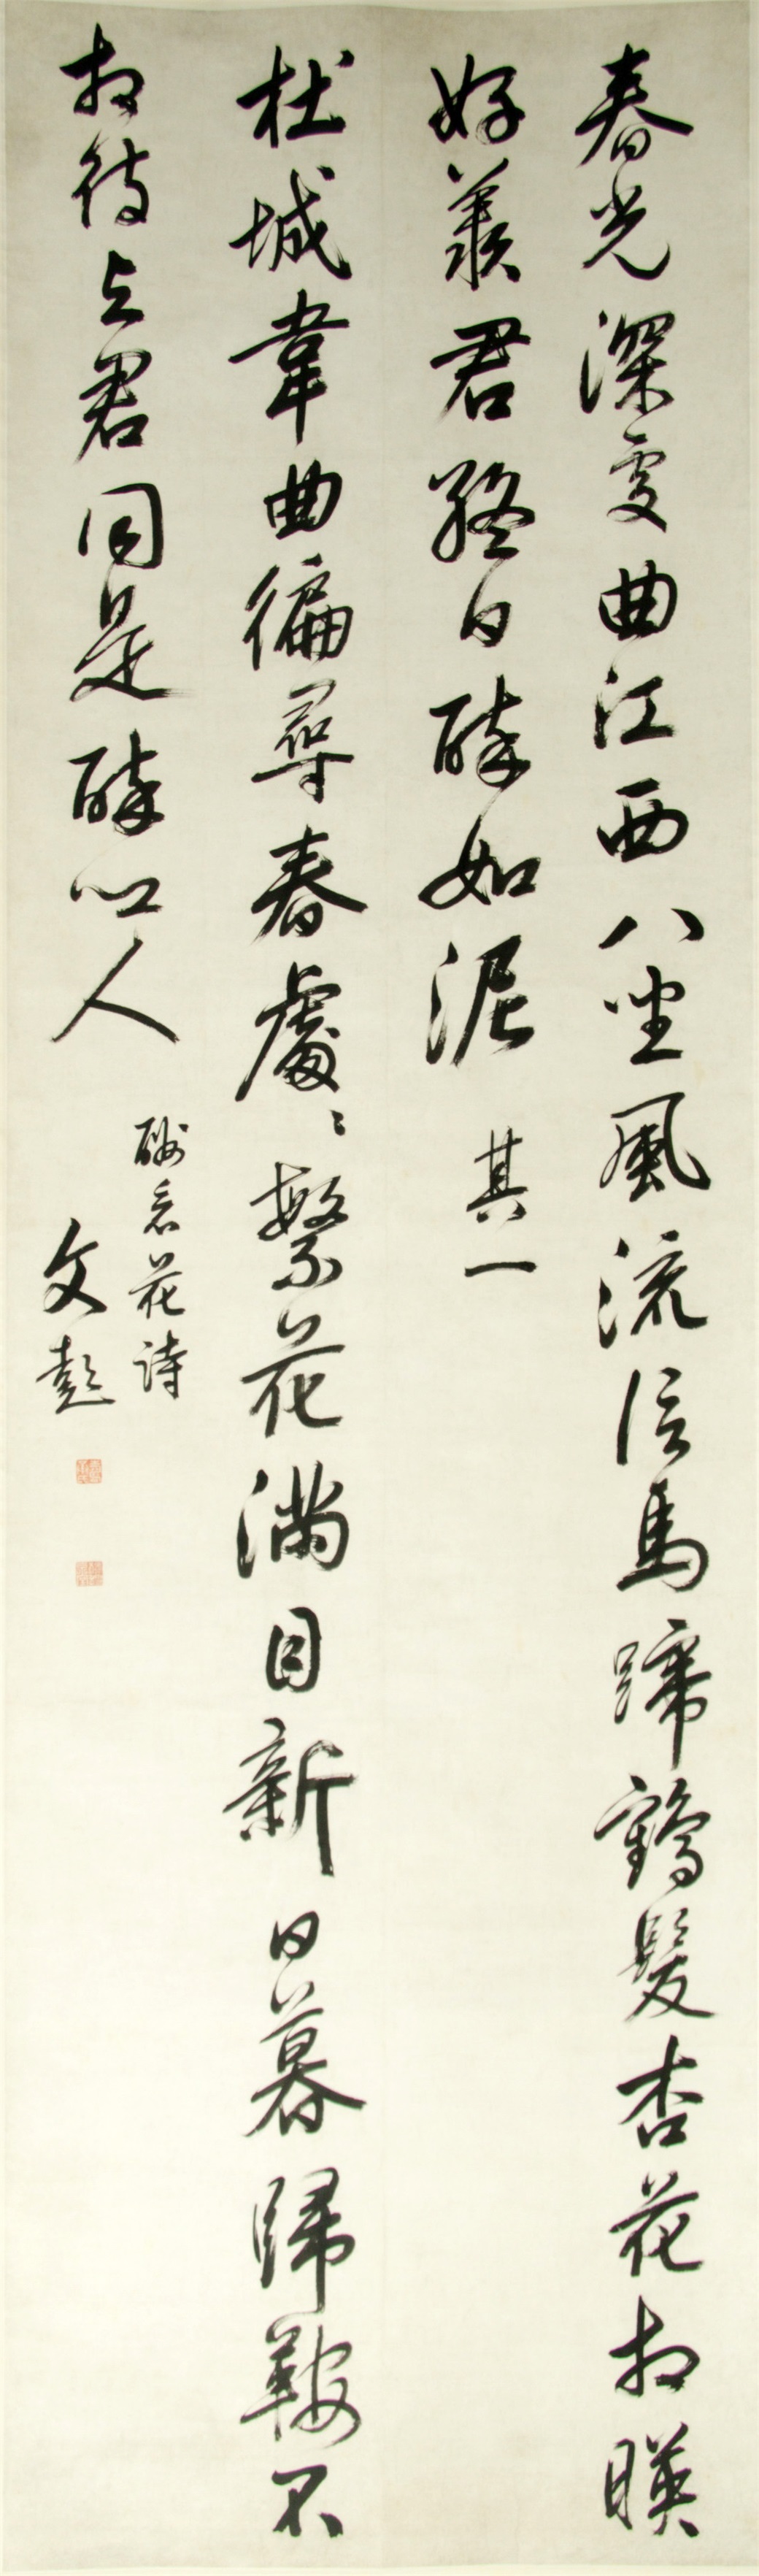 春光深處曲江西八坐風流信馬蹄鶴髮杏花相暎
好羨君終日醉如泥 其一
杜城韋曲徧尋春處〻繁花滿目新日暮歸鞍不
相待與君同是醉鄉人
酬看花詩
文彭